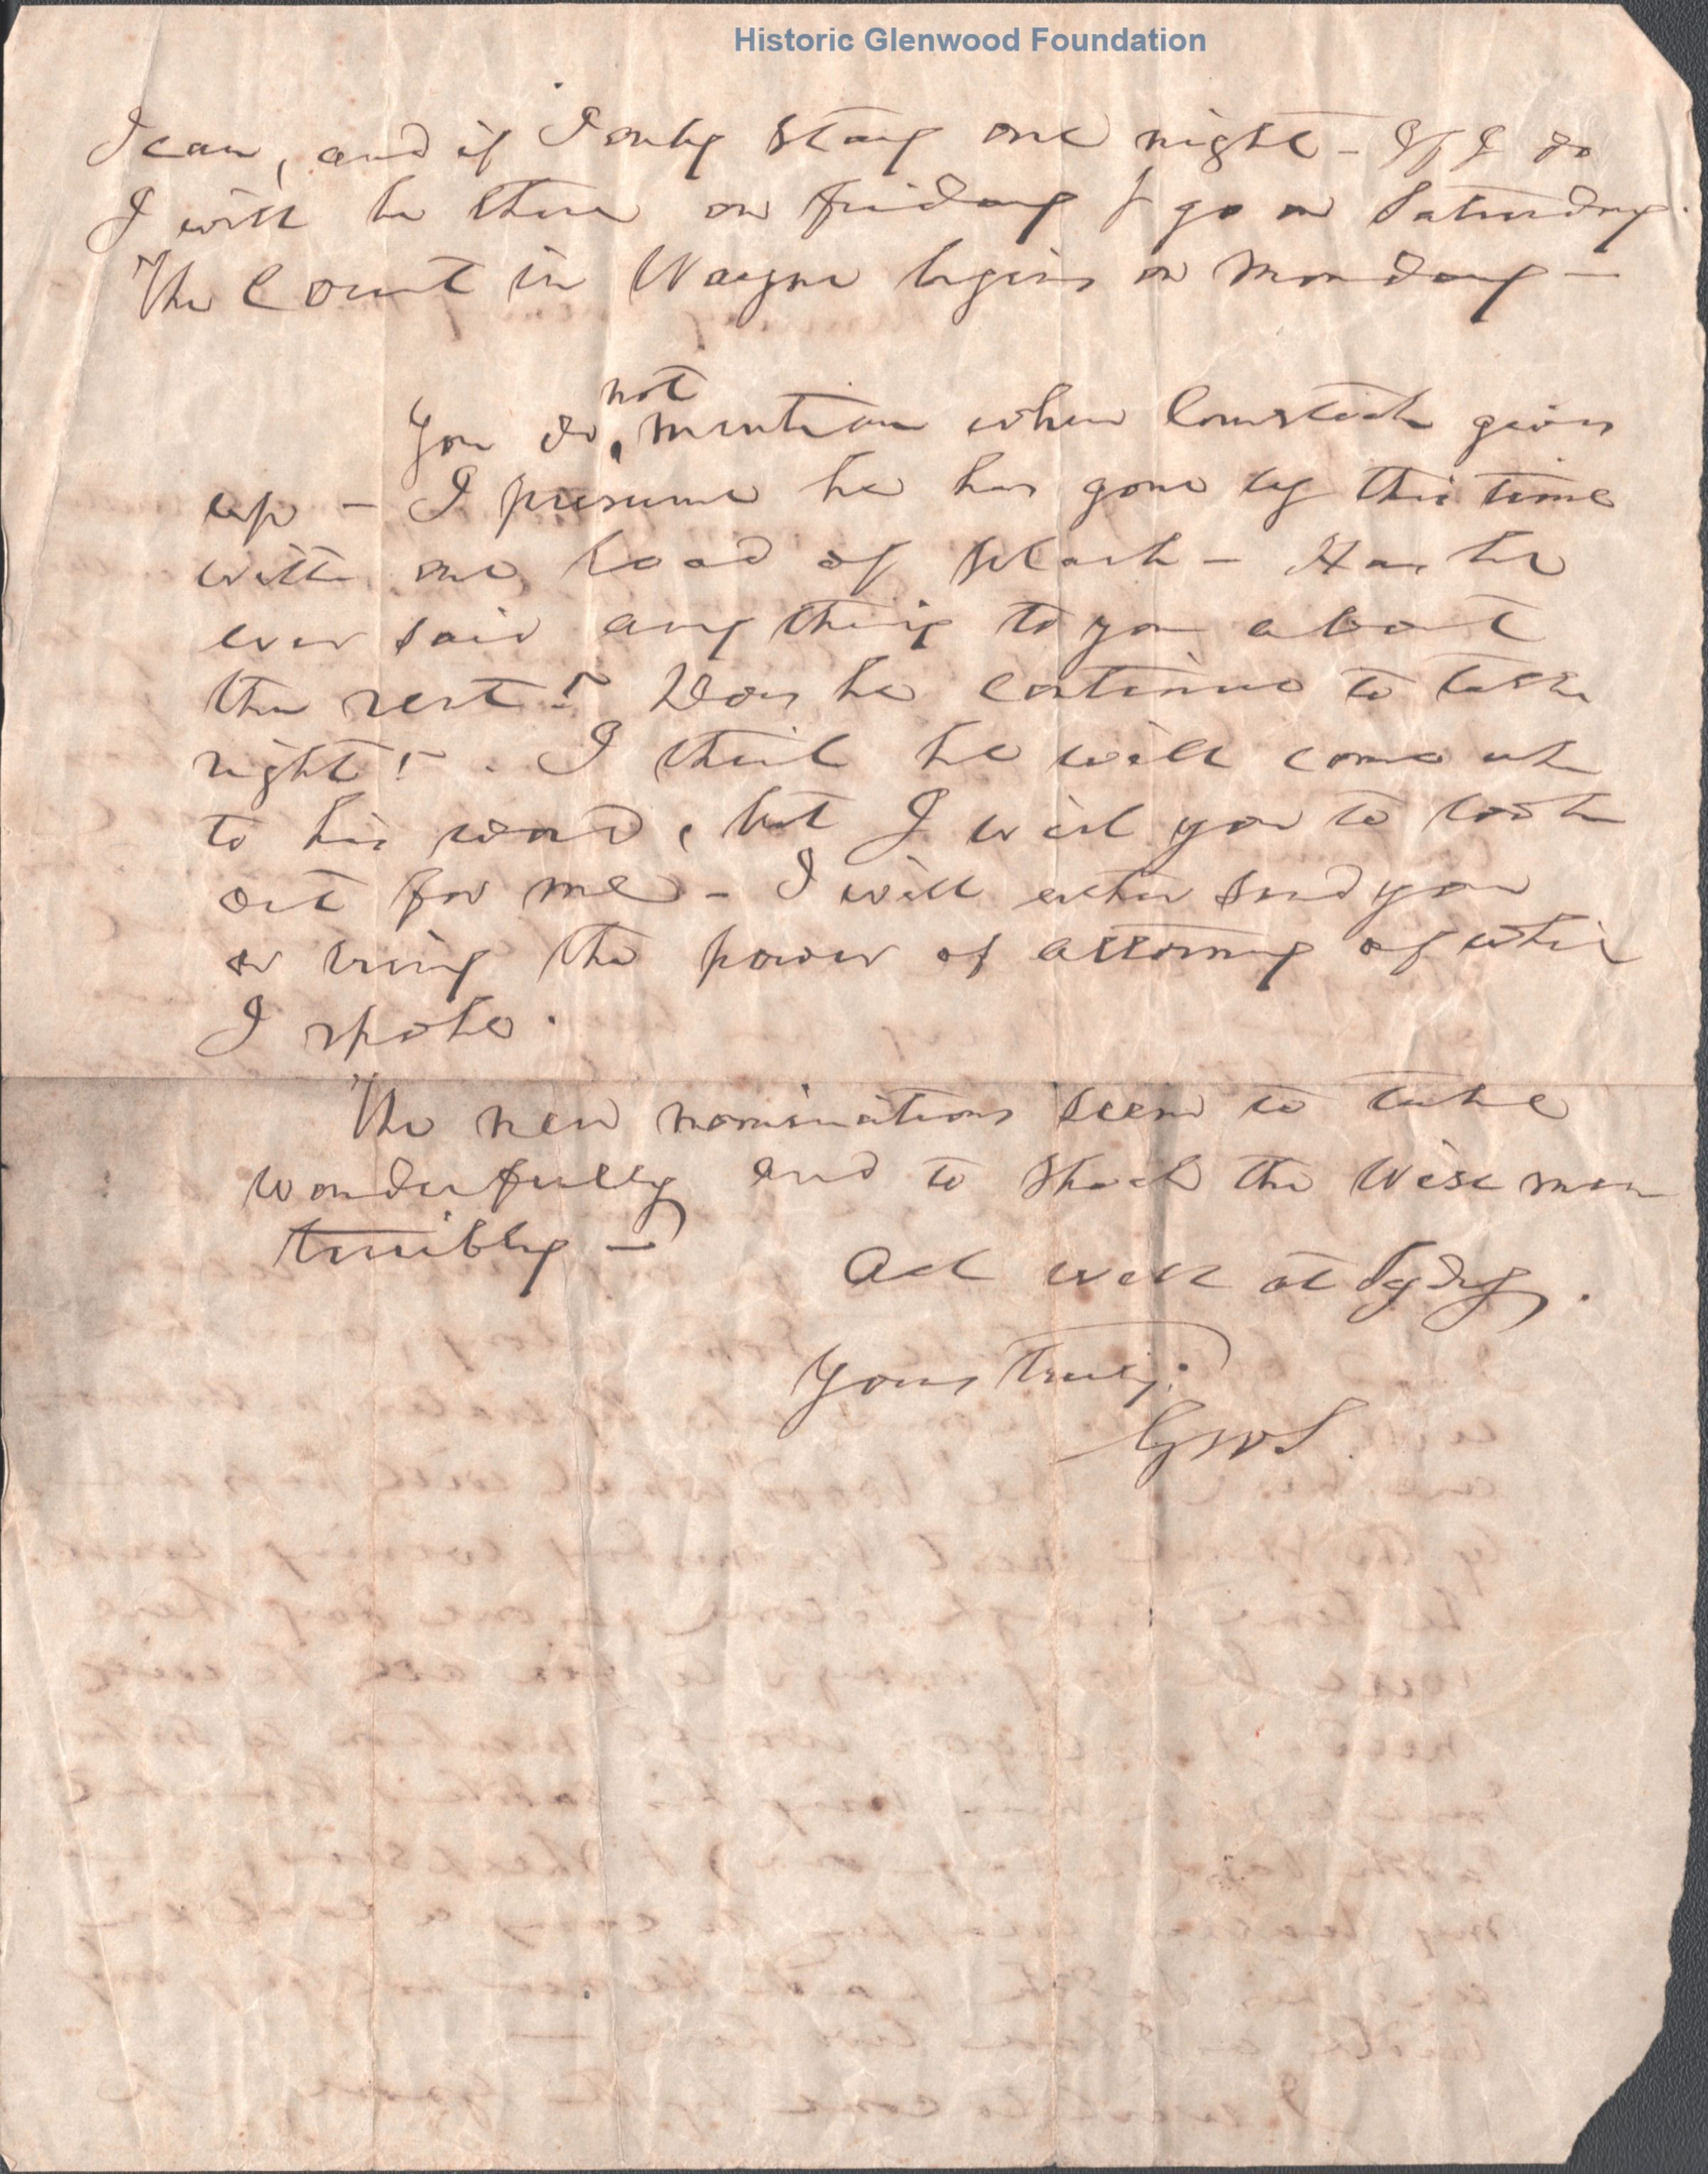 Historic Glenwood Foundation
I can, and if I only stay one night - If I do
I will be there on friday & go on Saturday.
The Court in Wayne begins on Monday -
not
You do, mention when Comstock gives
up - I presume he has gone by this time
with one load of black - Has he
ever said any thing to you about
the rest? Does he continue to talk
right? . I think he will come up
to his word, but I wish you to look
out for me - I will either send you
or bring the power of attorney of which
I spoke.
The new nominations seem to take
wonderfully and to shock the Wise men
terribly -
All well at
Yours Truly.
GWS.